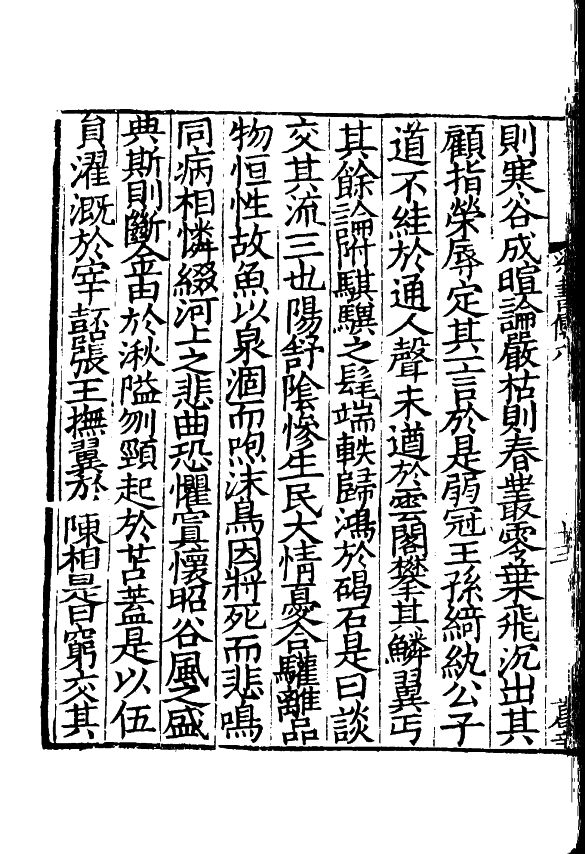 則寒谷成暄論嚴枯則春叢零葉飛沉出其
顧指榮辱定其一言於是弱冠王孫綺紈公子
道不絓於通人聲未遒於雲閣攀其鱗翼丐
其餘論附騏驥之髦端軼歸鴻於碣石是曰談
交其流三也陽舒陰慘生民大情憂合驩離品
物恒性故魚以泉涸而喣沫鳥因將死而悲鳴
同病相憐綴河上之悲曲恐懼寘懷昭谷風之盛
典斯則斷金由於湫隘刎頸起於苫蓋是以伍
員濯溉於宰嚭張王撫翼於陳相是曰窮交其